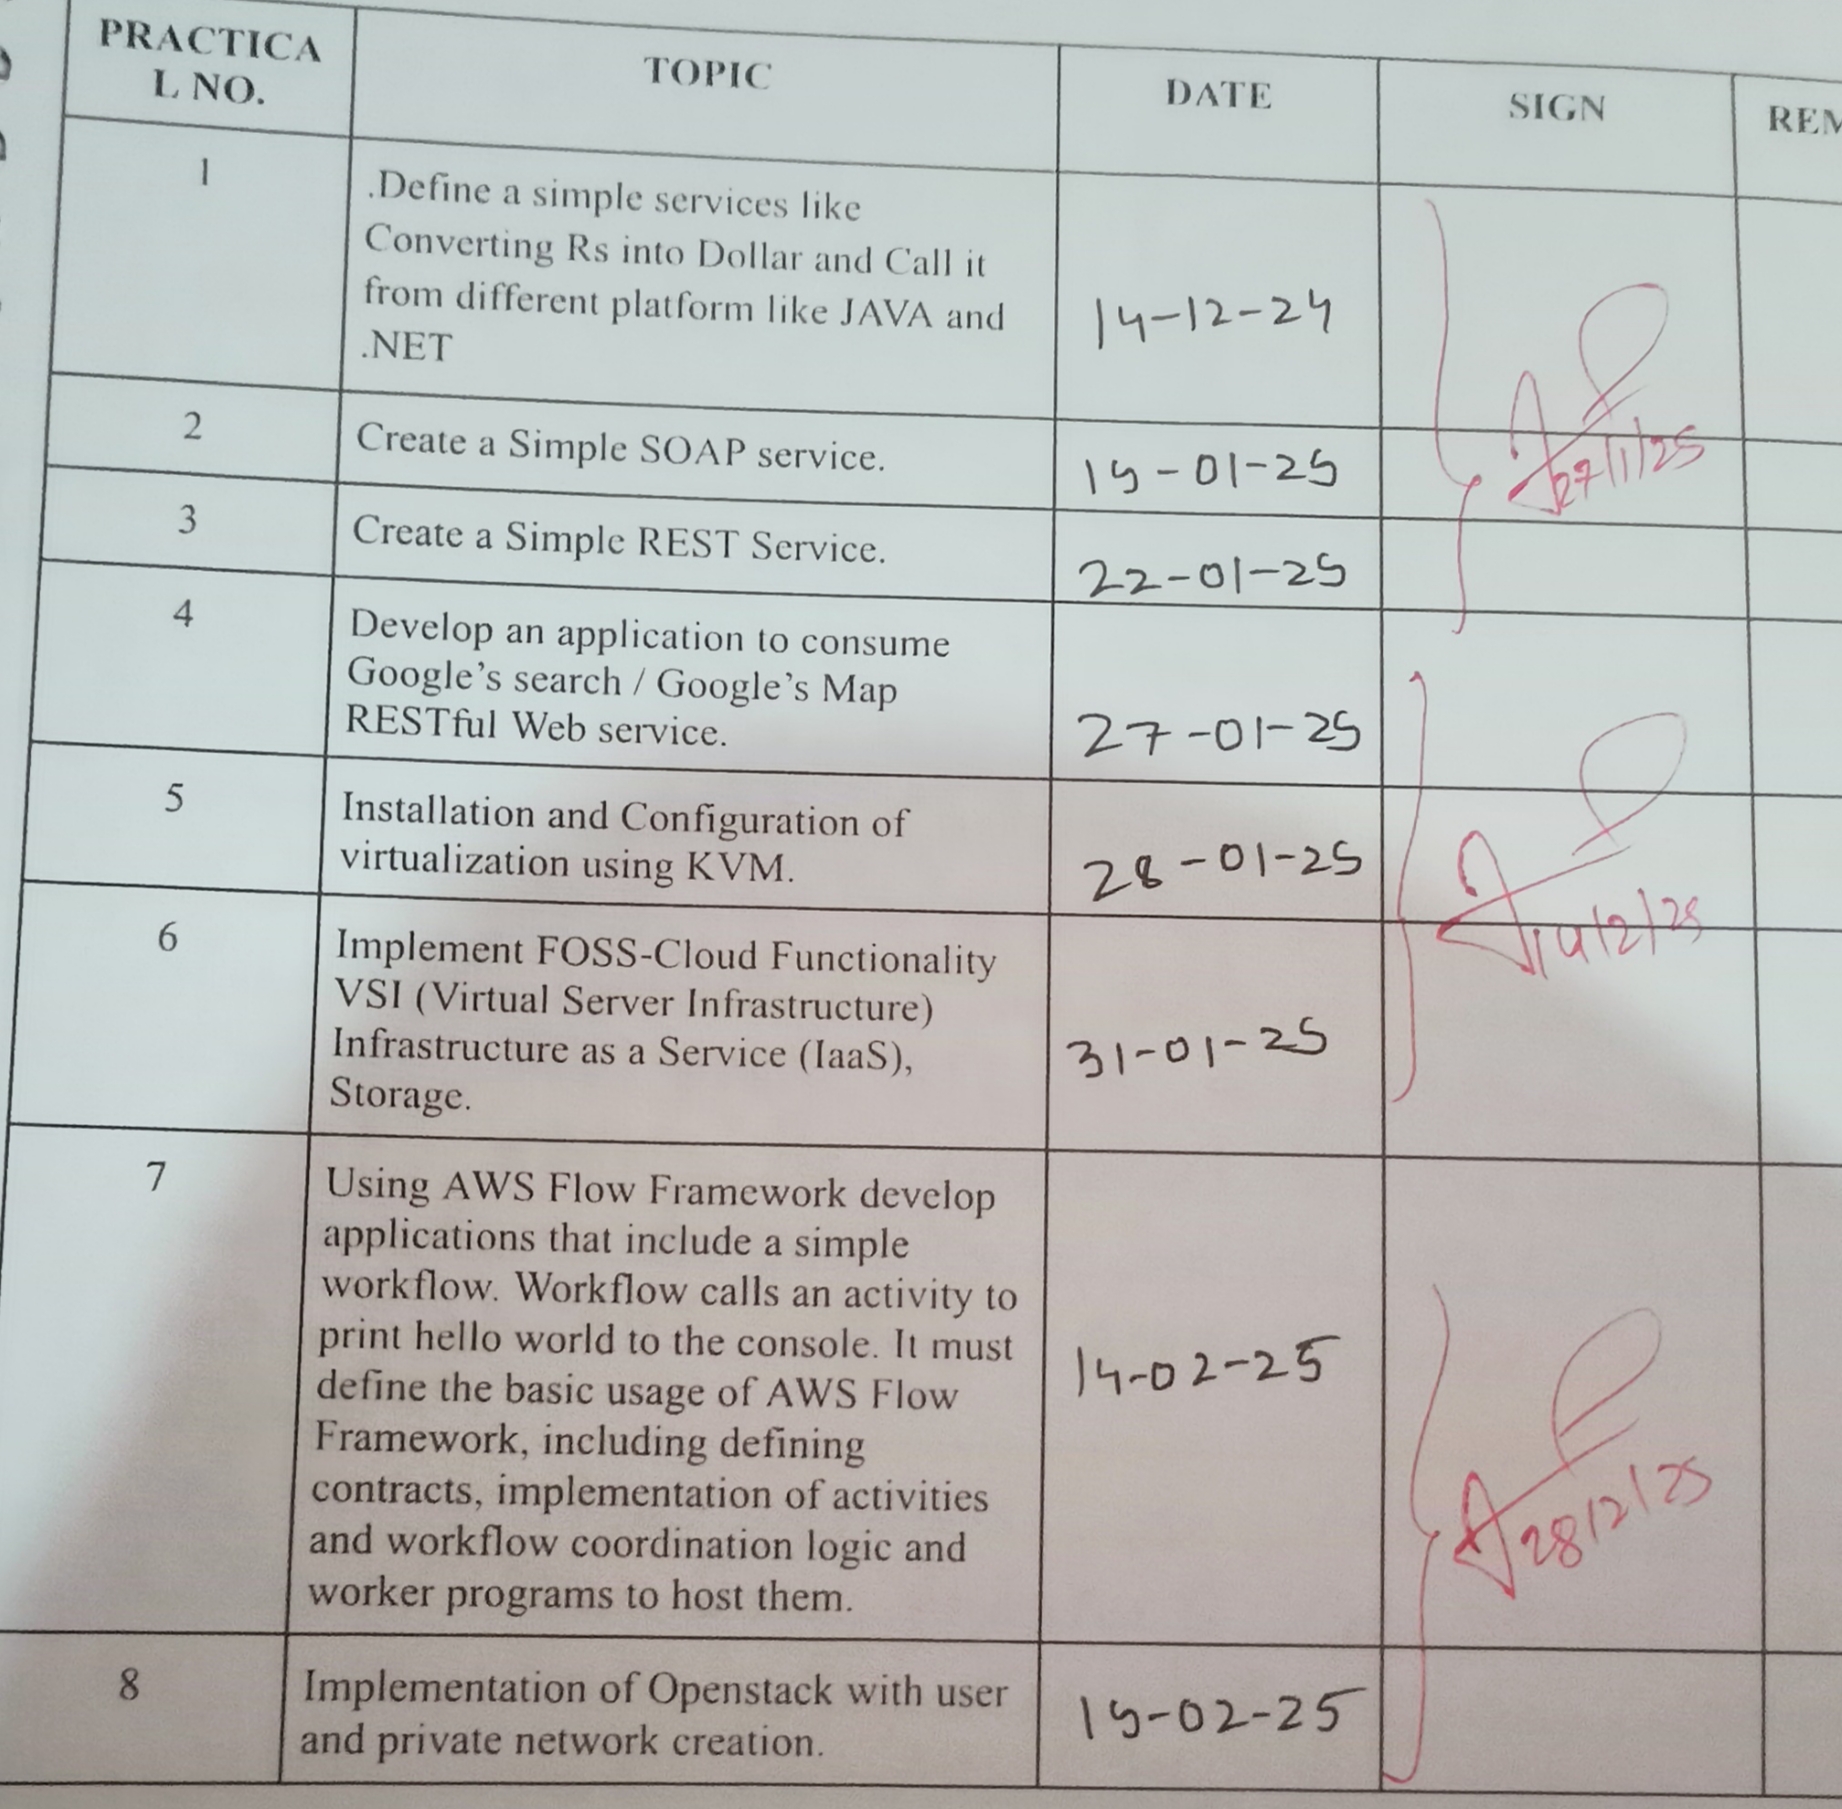 PRACTICA
L NO.
TOPIC
DATE
SIGN
REM
1
.Define a simple services like
Converting Rs into Dollar and Call it
from different platform like JAVA and
.NET
14-12-24
2
Create a Simple SOAP service.
15-01-25
27/1/25
3
Create a Simple REST Service.
22-01-25
4
Develop an application to consume
Google's search / Google's Map
RESTful Web service.
27-01-25
5
Installation and Configuration of
virtualization using KVM.
28-01-25
14/2/25
6
Implement FOSS-Cloud Functionality
VSI (Virtual Server Infrastructure)
Infrastructure as a Service (IaaS),
Storage.
31-01-25
7
Using AWS Flow Framework develop
applications that include a simple
workflow. Workflow calls an activity to
print hello world to the console. It must
define the basic usage of AWS Flow
Framework, including defining
contracts, implementation of activities
and workflow coordination logic and
worker programs to host them.
14-02-25
28/2/25
8
Implementation of Openstack with user
and private network creation.
15-02-25